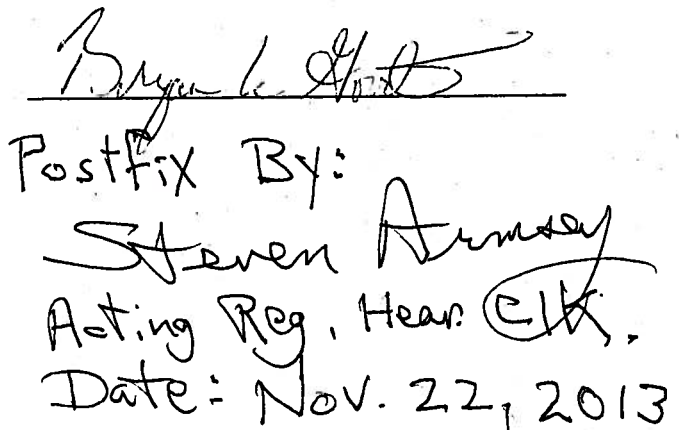 Bryan
Postfix By:
Steven Armsey
Acting Reg. Hear. Clk.
Date: Nov. 22, 2013